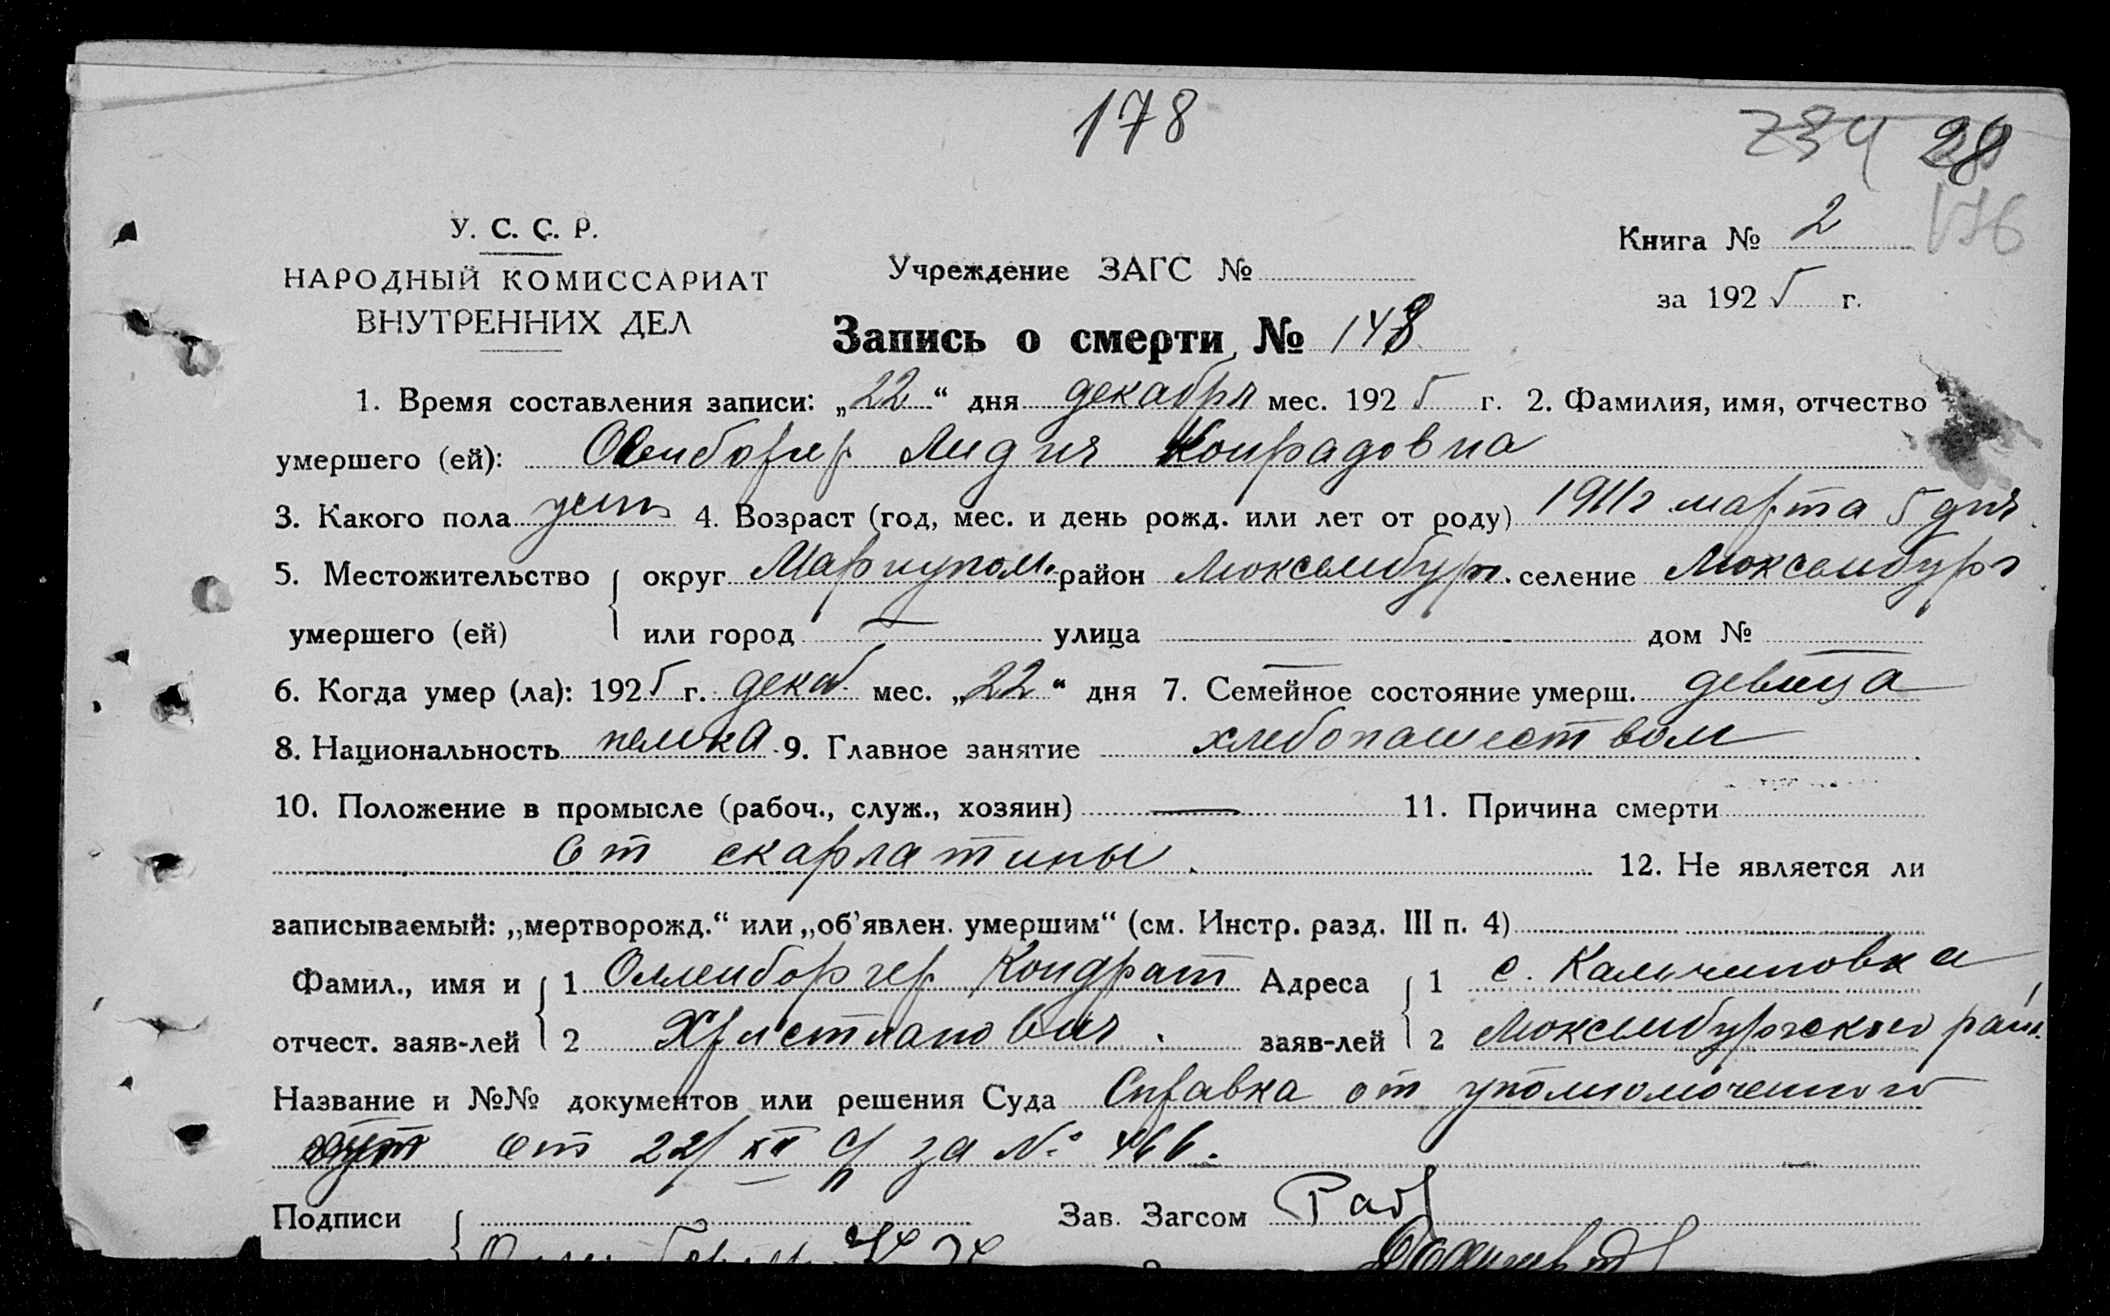 178
234 28
176
У. С. С. Р.
НАРОДНЫЙ КОМИССАРИАТ
ВНУТРЕННИХ ДЕЛ
Учреждение ЗАГС №
Книга № 2
за 1925 г.
Запись о смерти № 148
1. Время составления записи: „22“ дня декабря мес. 1925 г. 2. Фамилия, имя, отчество
умершего (ей): Оленборгер Лидия Конрадовна
3. Какого пола жен 4. Возраст (год, мес. и день рожд. или лет от роду) 1911г марта 5 дня
5. Местожительство умершего (ей) округ Мариупол. район Люксембург. селение Люксембург
или город — улица — дом № —
6. Когда умер (ла): 1925 г. декаб. мес. „22“ дня 7. Семейное состояние умерш. девица
8. Национальность немка 9. Главное занятие хлебопашеством
10. Положение в промысле (рабоч., служ., хозяин) — 11. Причина смерти
от скарлатины. 12. Не является ли
записываемый: „мертворожд.“ или „об’явлен. умершим“ (см. Инстр. разд. III п. 4)
Фамил., имя и 1 Олленборгер Кондрат Адреса 1 с. Кальчиновка
отчест. заяв-лей 2 Христианович. заяв-лей 2 Люксембургского рай.
Название и №№ документов или решения Суда Справка от уполномоченного
от 22/XII с/г за № 466.
Подписи Зав. Загсом